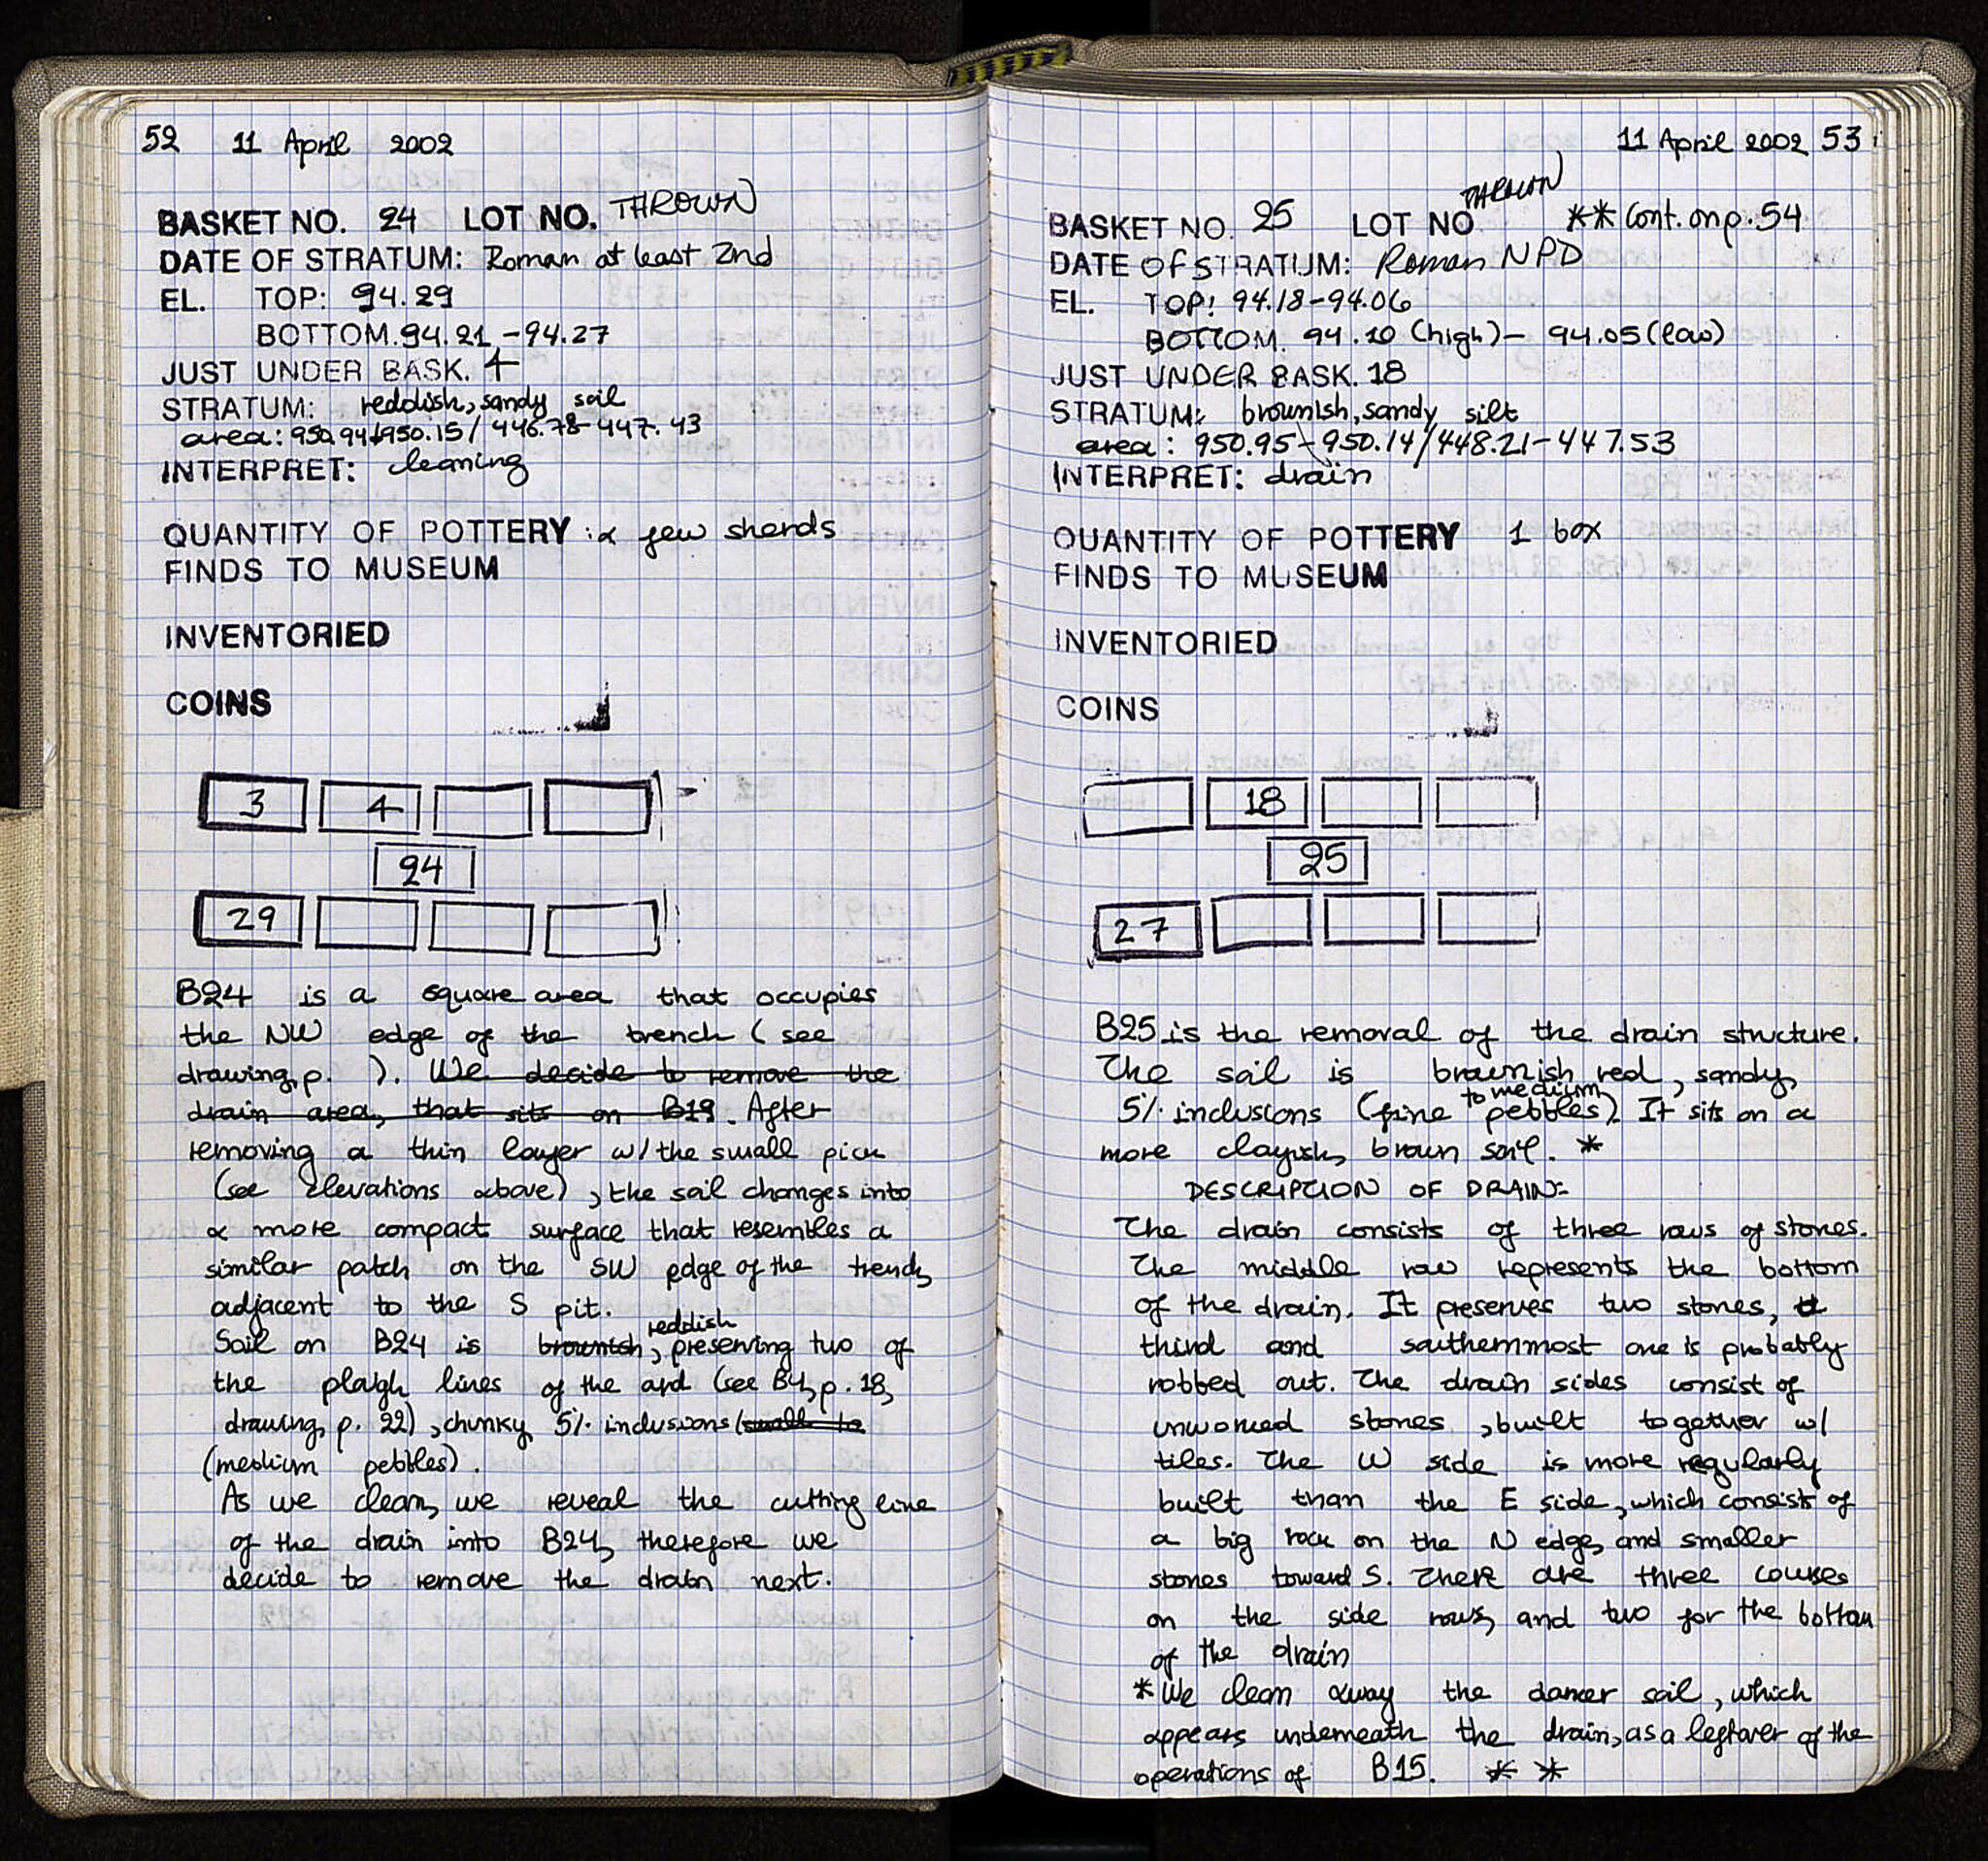 52 11 April 2002
BASKET NO. 24 LOT NO. THROWN
DATE OF STRATUM: Roman at least 2nd
EL. TOP: 94.29
BOTTOM. 94.21 - 94.27
JUST UNDER BASK. 4
STRATUM: reddish, sandy soil
area: 950.94-950.15 / 446.78-447.43
INTERPRET: cleaning
QUANTITY OF POTTERY: a few sherds
FINDS TO MUSEUM
INVENTORIED
COINS
3 4
24
29
B24 is a square area that occupies
the NW edge of the trench (see
drawing, p. ). We decide to remove the
drain area, that sits on B19. After
removing a thin layer w/ the small pick
(see elevations above), the soil changes into
a more compact surface that resembles a
similar patch on the SW edge of the trench,
adjacent to the S pit.
Soil on B24 is brownish, reddish, preserving two of
the plough lines of the ard (see B4, p. 18,
drawing, p. 22), chunky, 5% inclusions (small to
(medium pebbles).
As we clean, we reveal the cutting line
of the drain into B24, therefore we
decide to remove the drain next.
11 April 2002 53
BASKET NO. 25 LOT NO THROWN ** Cont. on p. 54
DATE OF STRATUM: Roman NPD
EL. TOP: 94.18-94.06
BOTTOM. 94.10 (high) - 94.05 (low)
JUST UNDER BASK. 18
STRATUM: brownish, sandy silt
area: 950.95-950.14/448.21-447.53
INTERPRET: drain
QUANTITY OF POTTERY 1 box
FINDS TO MUSEUM
INVENTORIED
COINS
18
25
27
B25 is the removal of the drain structure.
The soil is brownish red, sandy,
5% inclusions (fine to medium pebbles). It sits on a
more clayish, brown soil. *
DESCRIPTION OF DRAIN:
The drain consists of three rows of stones.
The middle row represents the bottom
of the drain. It preserves two stones, a
third and southernmost one is probably
robbed out. The drain sides consist of
unworked stones, built together w/
tiles. The W side is more regularly
built than the E side, which consists of
a big rock on the N edge, and smaller
stones toward S. There are three courses
on the side rows, and two for the bottom
of the drain
* We clean away the darker soil, which
appears underneath the drain, as a leftover of the
operations of B15. **